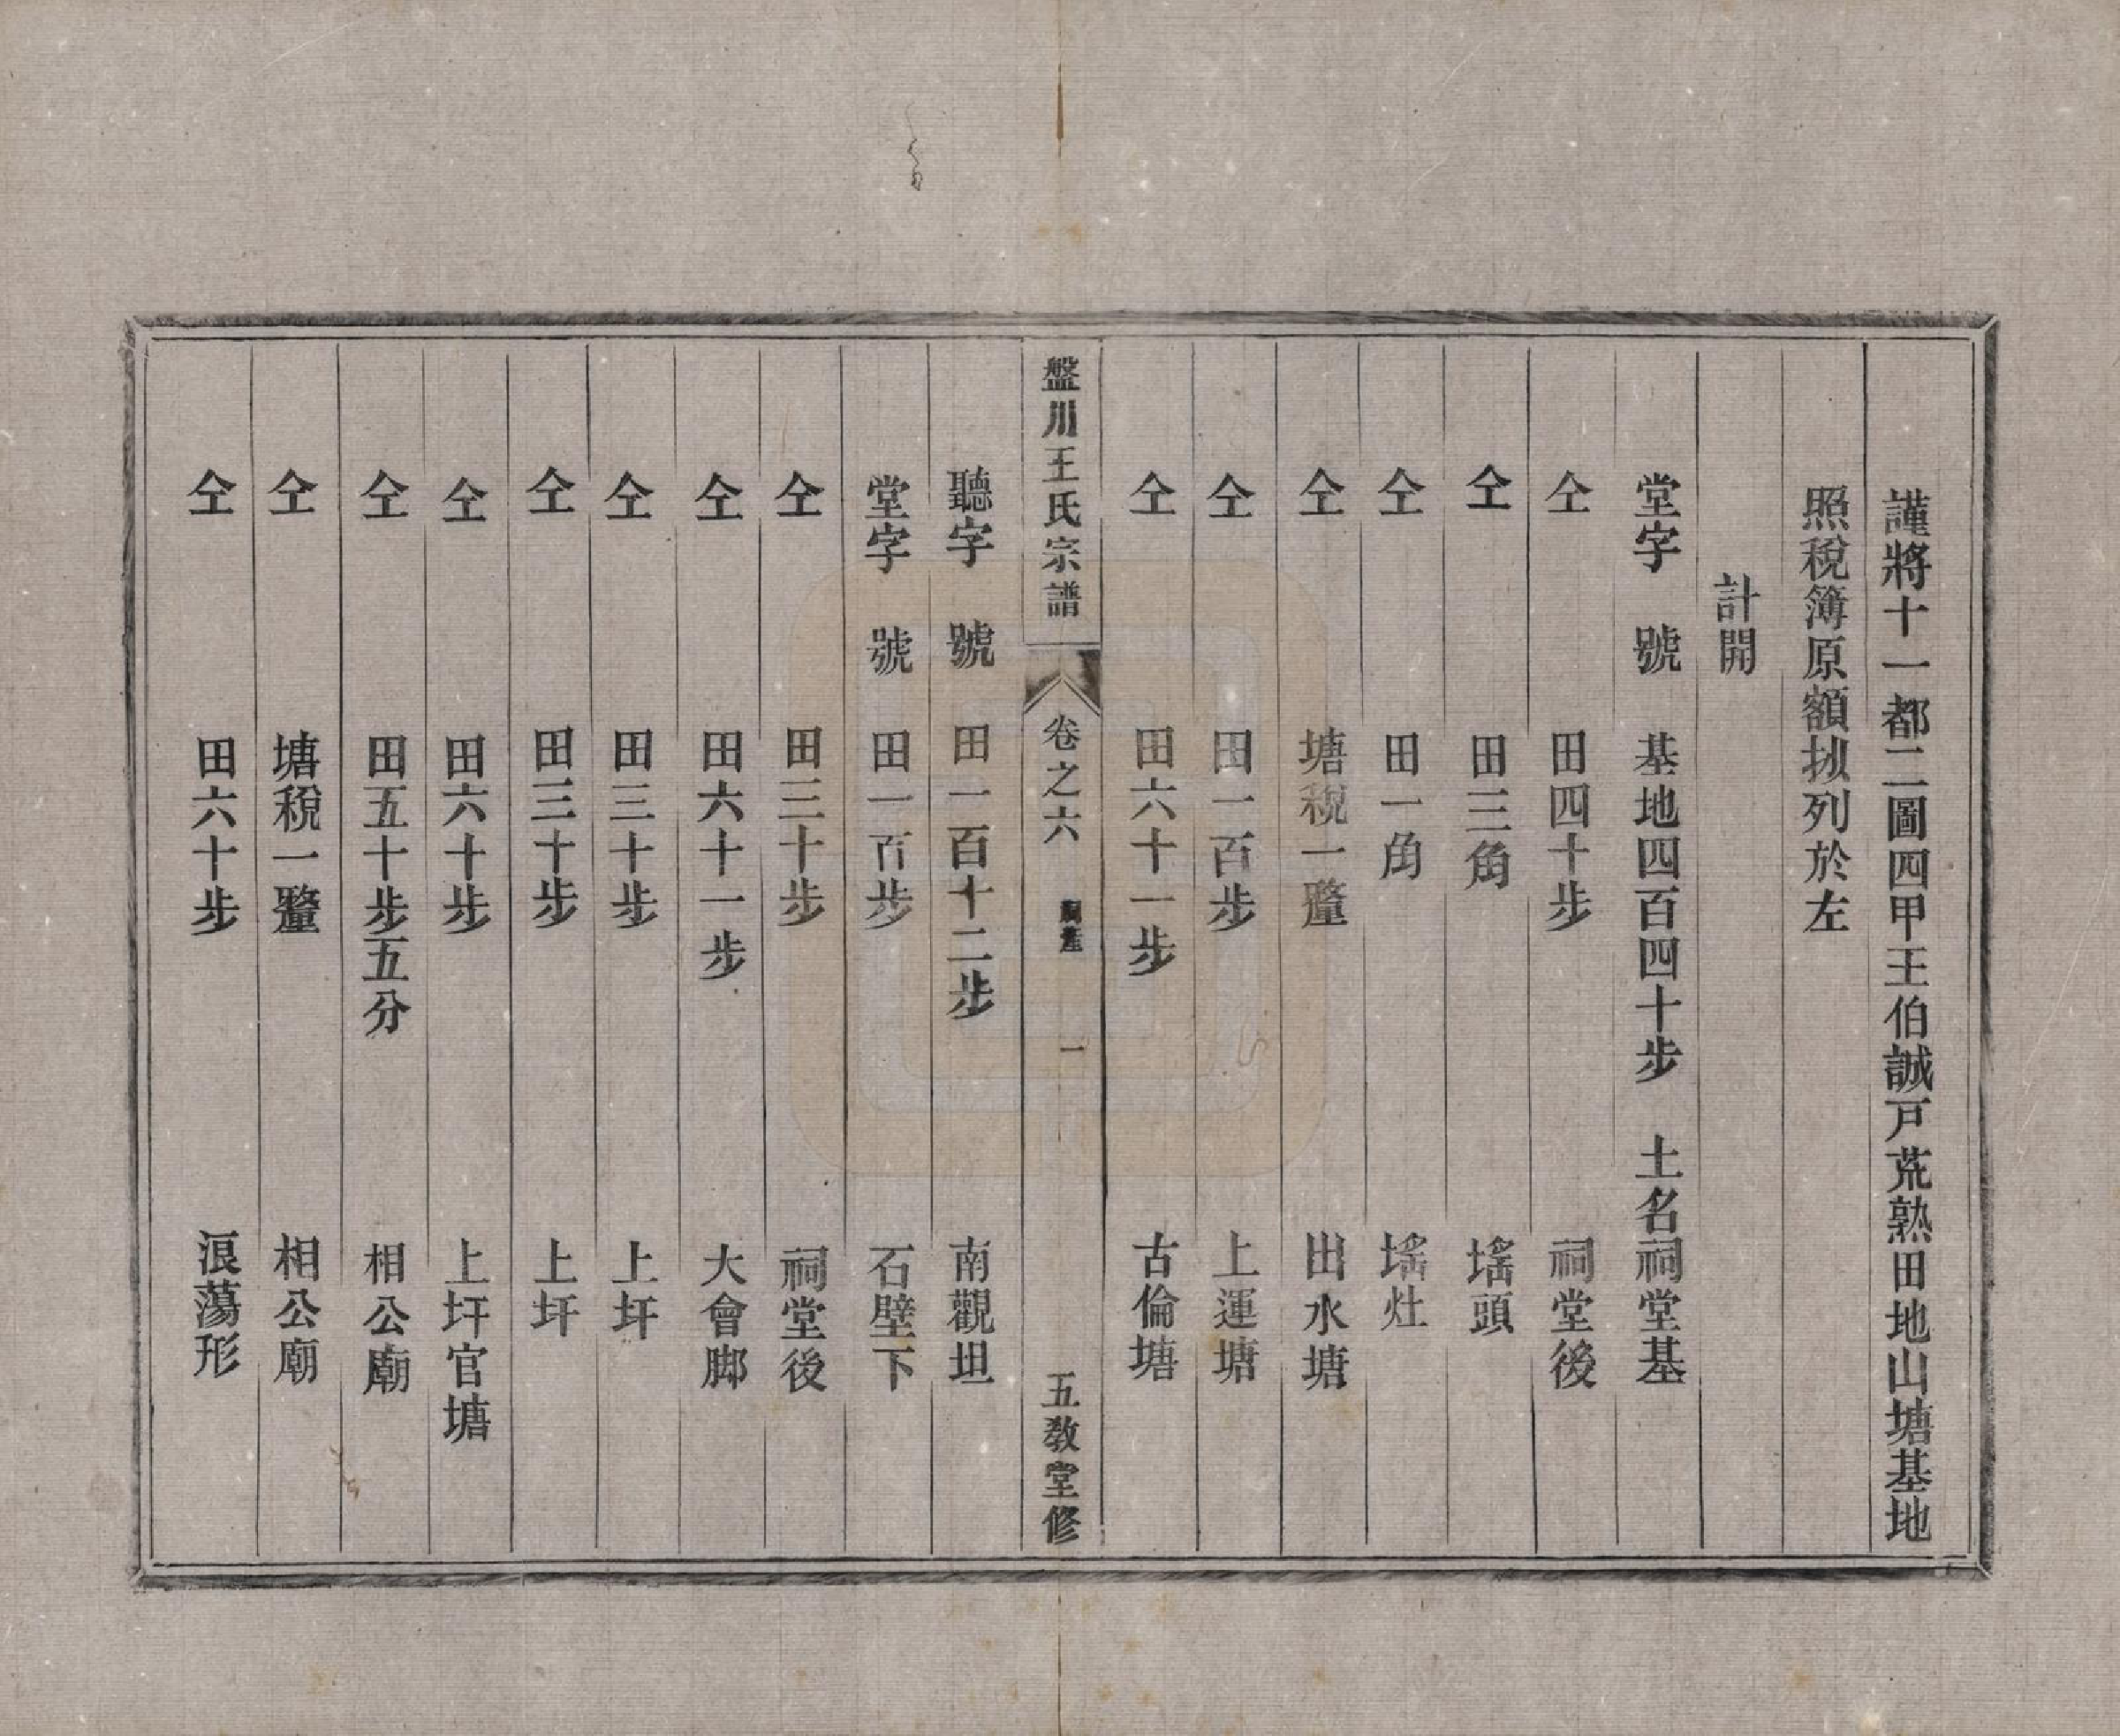 謹將十一都二圖四甲王伯誠戸荒熟田地山塘基地
照稅簿原額抝列於左
計開
堂字　號　基地四百四十步　土名祠堂基
仝　田四十步　祠堂後
仝　田三角　塘頭
仝　田一角　塘灶
仝　塘稅一釐　出水塘
仝　田一百步　上運塘
仝　田六十一步　古倫塘
盤川王氏宗譜　卷之六　祠產　一　五教堂修
聽字　號　田一百十二步　南觀坦
堂字　號　田一百步　石壁下
仝　田三十步　祠堂後
仝　田六十一步　大會脚
仝　田三十步　上圩
仝　田三十步　上圩
仝　田六十步　上圩官塘
仝　田五十步五分　相公廟
仝　塘稅一釐　相公廟
仝　田六十步　浪蕩形